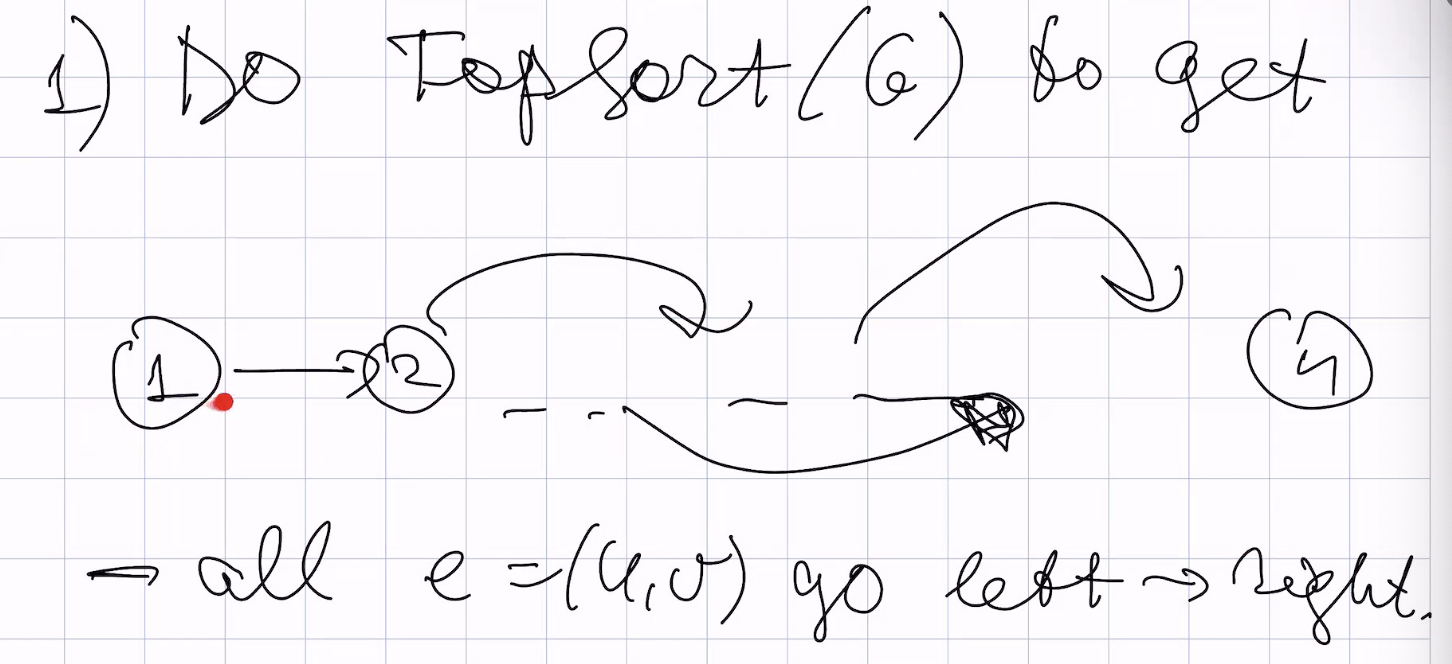 1) Do TopSort(G) to get
1 → 2 n
→ all e = (u,v) go left → right.